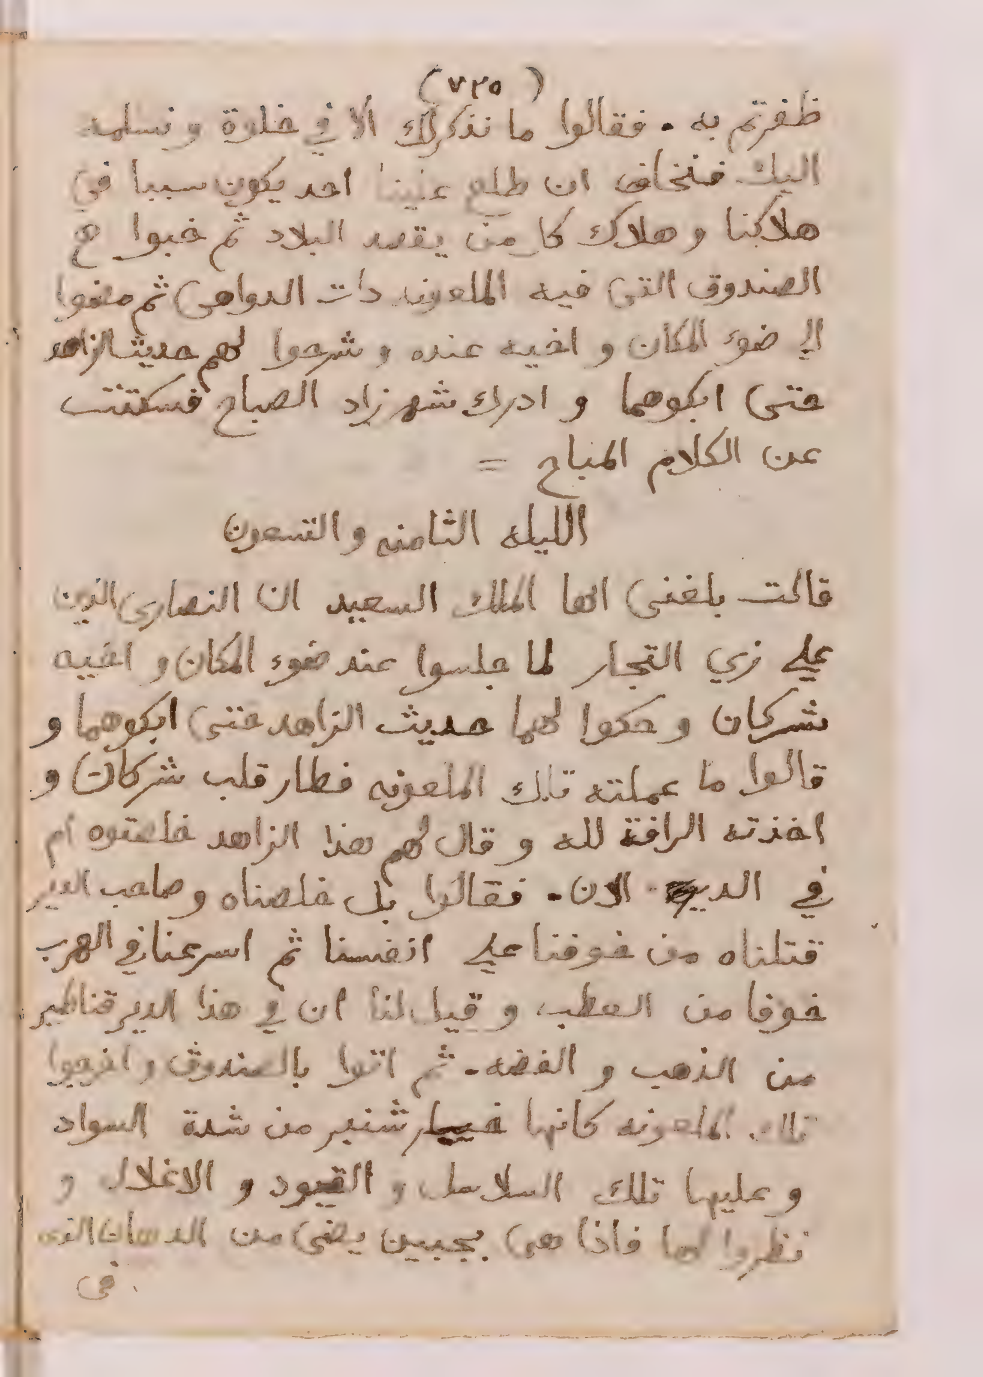 (٧٣٥)
ظفرتم به . فقالوا ما نذكرلك الا في خلوة ونسلمه
اليك فنخاف ان طلع علينا احد يكون سببا في
هلاكنا وهلاك كل من يقصد البلاد ثم خبوا
الصندوق التى فيه الملعونه دات الدواهى ثم مضوا
الى ضوء المكان و اخيه عنده و شرحوا لهم حديث الزاهد
حتى ابكوهما و ادرك شهرزاد الصباح فسكتت
عن الكلام المباح =
الليله الثامنه و التسعون
قالت بلغنى ايها الملك السعيد ان النصارى الذين
على زي التجار لما جلسوا عند ضوء المكان و اخيه
شركان و حكوا لهما حديث الزاهد حتى ابكوهما و
قالوا ما عملته تلك الملعونه فطار قلب شركان و
اخذته الرافة لله و قال لهم هذا الزاهد خلصتوه ام
في الدير الان . فقالوا بل خلصناه و صاحب الدير
قتلناه من خوفنا على انفسنا ثم اسرعنا في الهرب
خوفا من العطب و قيل لنا ان في هذا الدير قناطير
من الذهب و الفضه . ثم اتوا بالصندوق و اخرجوا
تلك الملعونه كانها خيار شنبر من شدة السواد
و عليها تلك السلاسل و القيود و الاغلال و
نظروا لها فاذا هى بجبين يضى من الدهان الذى
فى